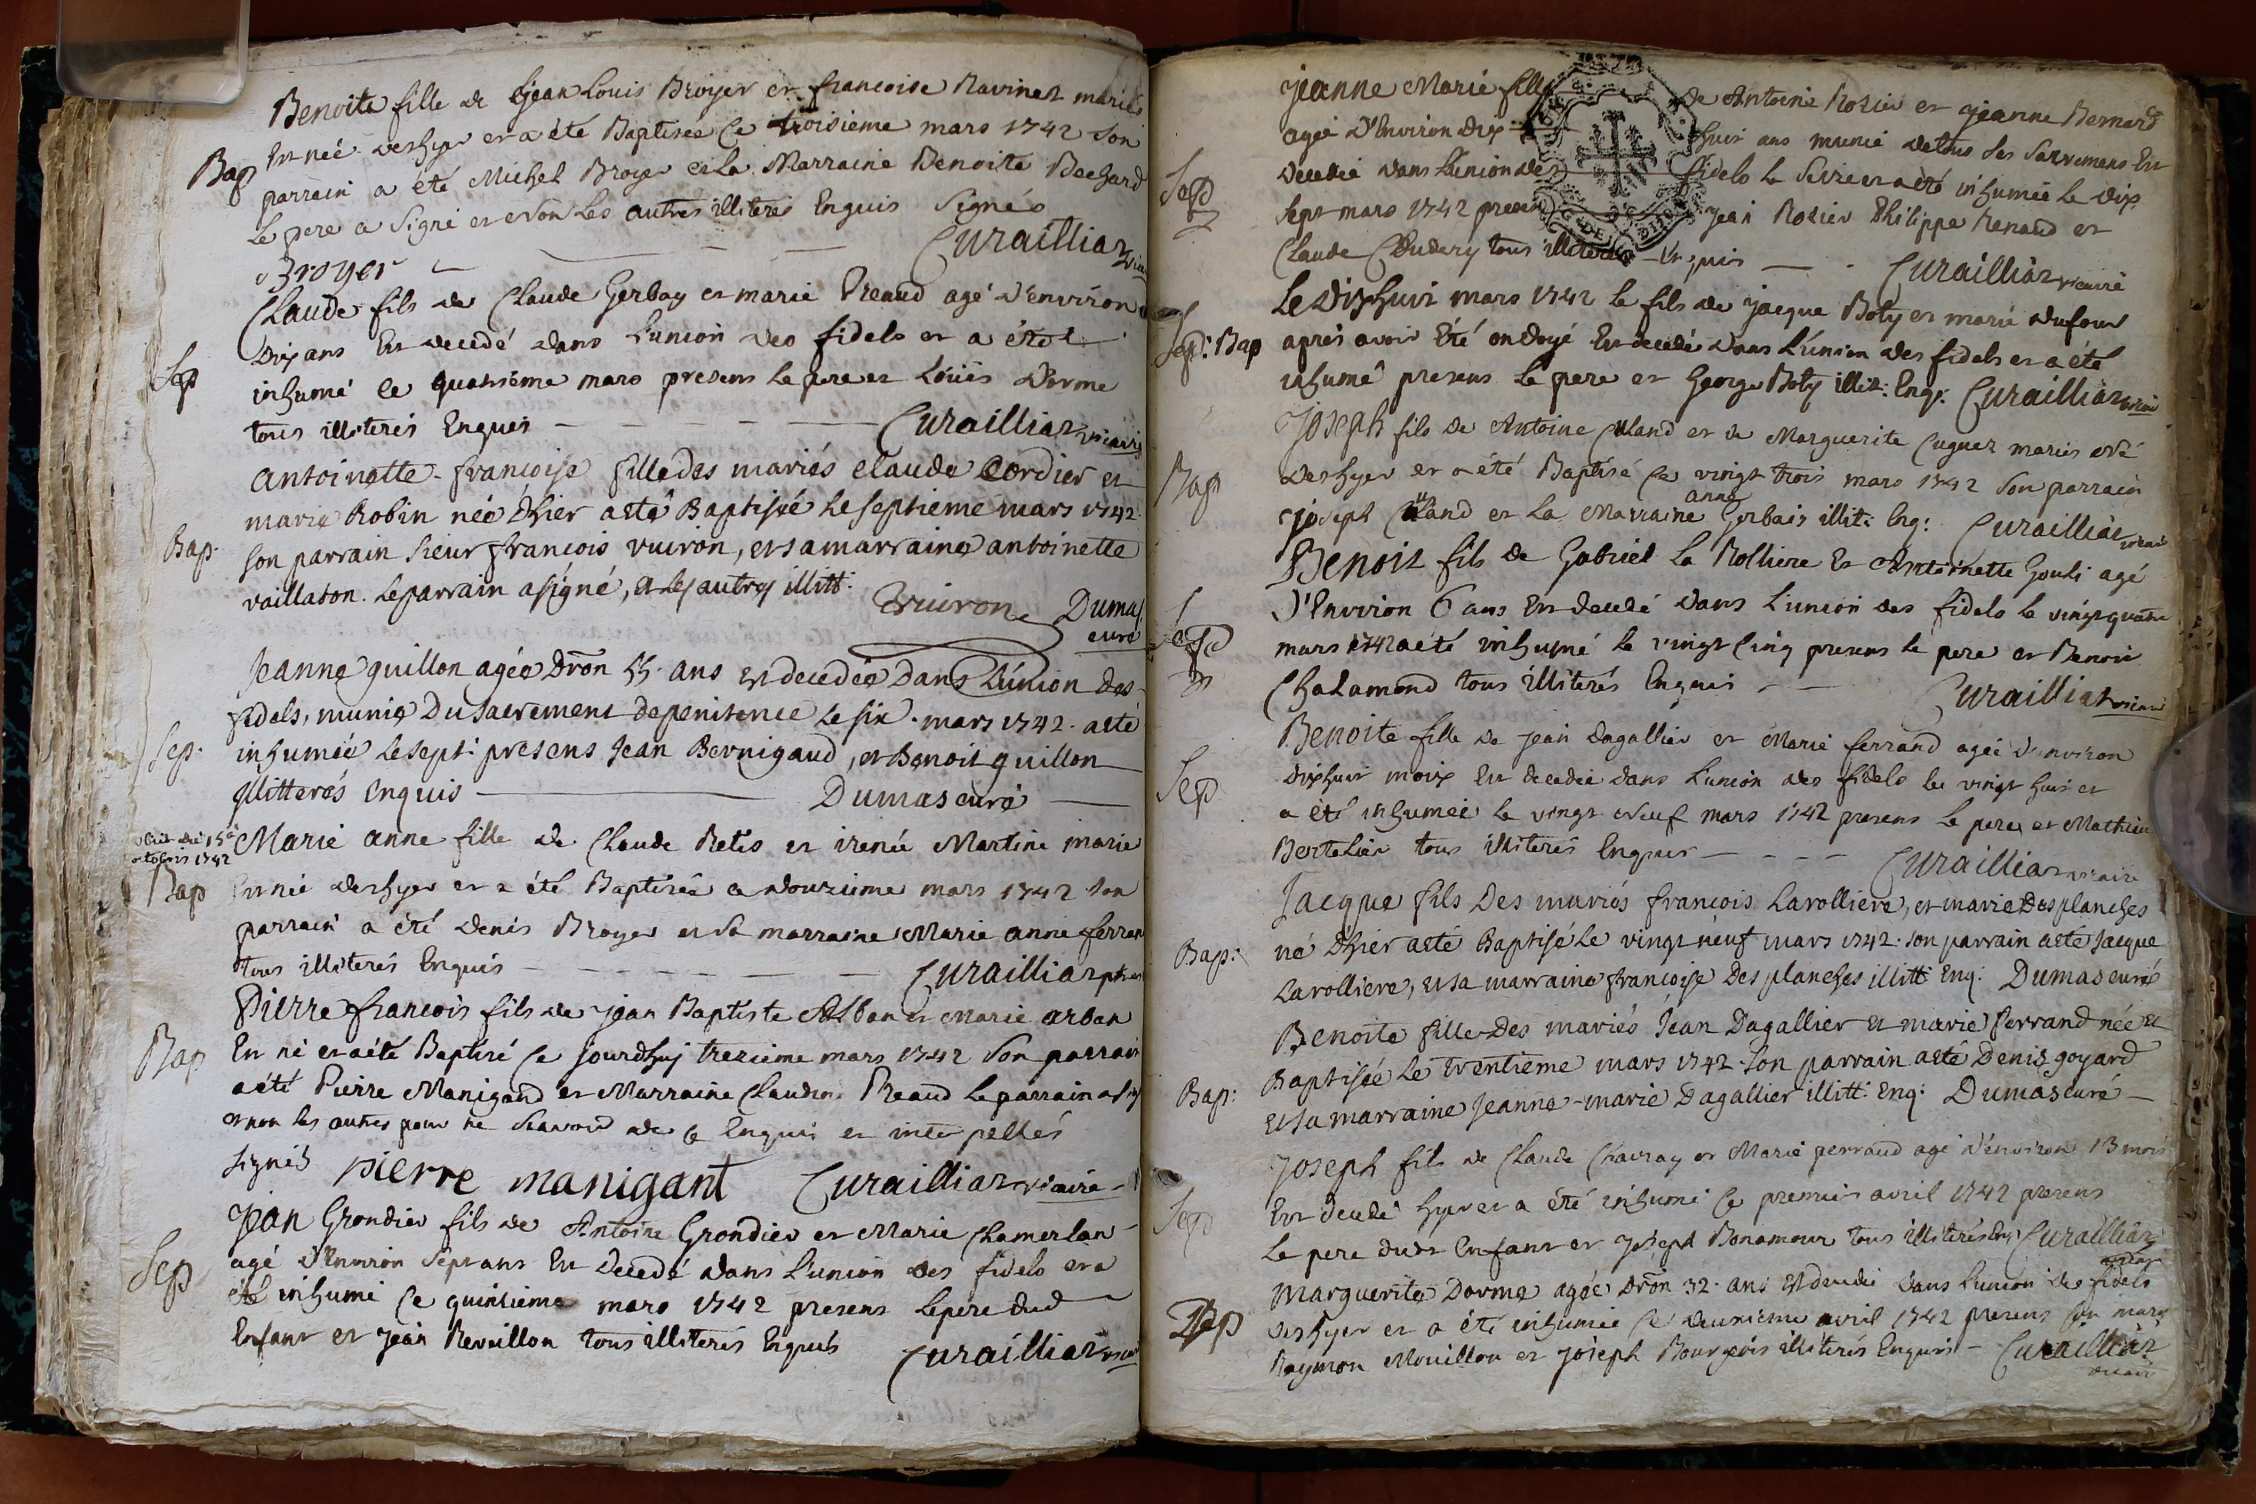 Benoite fille de Jean Louis Broyer et francoise Ravinet mariés
Bap
Est née deshyer et a été Baptisée Ce troisieme mars 1742 son
parrain a été Michel Broyer et la Marraine Benoite Bechard
le pere a signé et non les autres illiterés Enquis Signés
Broyer Curailliat vicaire
Claude fils de Claude Gerbay et marie Preaud agé d'environ
Sep
dix ans Est decedé dans l'union des fidels et a été
inhumé le quatrième mars presens le pere et Loüis Dorme
tous illiterés Enquis Curailliat vicaire
antoinette-françoise fille des mariés claude Cordier et
marie Robin née d'hier a eté Baptisée le septieme mars 1742.
Bap.
son parrain sieur françois vuiron, et sa marraine antoinette
vaillaton. le parrain a signé, et les autres illitt:
Vuiron Dumas
curé
Jeanne guillon agée dron 55. ans Est decedée dans l'union des
fidels, munie du sacrement de penitence le six. mars 1742. a eté
Sep.
inhumée le sept: presens Jean Bernigaud, et Benoit guillon
illitterés enquis Dumas curé
obiit die 15a
octobris 1742
Marie anne fille de Claude Retis et irenée Martine marié
Bap
Est née deshyer et a été Baptisée ce douzieme mars 1742 son
parrain a été Denis Broyer et sa marraine Marie anne ferran
tous illiterés Enquis Curailliat ptre
Pierre francois fils de jean Baptiste Alban et Marie arban
Bap
Est né et a été Baptisé Ce jourdhuj trezieme mars 1742 Son parrain
a été Pierre Manigand et Marraine Claudine Preaud le parrain a sig
et non les autres pour ne Scavoir de ce Enquis et interpellés
signés pierre manigant Curailliat vicaire
Jean Grondier fils de Antoine Grondier et Marie Chamerlan
Sep
agé d'Environ Sept ans Est Decedé dans l'union des fidels et a
été inhumé Ce quinzieme mars 1742 presens le pere dud
Enfant et Jean Revaillon tous illiterés Enquis
Curailliat vicaire
Jeanne Marie fille de Antoine Rozier et Jeanne Bernard
agée d'Environ dix huit ans munie de tous ses Sacremens Est
Sep
Decedée dans l'union des fidels le Seize et a été inhumée le dix
sept mars 1742 presens Jean Rozier Philippe Renaud et
Claude Chudery tous illiterés Enquis Curailliat vicaire
Le dixhuit mars 1742 le fils de Jacque Boty et marie dufour
Sep: Bap
aprés avoir Eté ondoyé Est decedé dans l'union des fidels et a été
inhumé presens le pere et George Boty illit: Enq: Curailliat vicaire
Joseph fils de Antoine Cùland et de Marguerite Cuguet mariés né
Bap
deshyer et a été Baptisé Ce vingt trois mars 1742 Son parrain
Joseph Cùland et la Marraine anne Gerbais illit: Enq: Curailliat vicaire
Benoit fils de Gabriel La Rolliere Et Antoinette Gouli agé
Sep
d'Environ 6 ans Est decedé dans l'union des fidels le vingt quatre
mars 1742 a été inhumé le vingt Cinq presens le pere et Benoit
Chalamond tous illiterés Enquis Curailliat vicaire
Benoite fille de Jean Dagallier et Marie ferrand agée d'environ
Sep
dixhuit moix Est decedée dans l'union des fidels le vingt huit et
a été inhumée le vingt neuf mars 1742 presens le pere et Mathieu
Bertelier tous illiterés Enquis Curailliat vicaire
Jacque fils des mariés françois Larolliere, et marie Desplanches
Bap:
né d'hier a eté Baptisé le vingt neuf mars 1742. son parrain a eté Jacque
Larolliere, et sa marraine françoise Desplanches illitt: Enq: Dumas curé
Benoite fille-des mariés Jean Dagallier et marie ferrand née et
Bap:
Baptisée le trentieme mars 1742. son parrain a eté Denis goyard
et sa marraine Jeanne-marie Dagallier illitt: Enq: Dumas curé
Joseph fils de Claude Chavray et Marie perraud agé d'environ 13 mois
Sep
Est decedé hyer et a été inhumé Ce premier avril 1742 presens
le pere dudt Enfant et Joseph Bonamour tous illiterés Enq: Curailliat
vicaire
Marguerite Dorme agée dron 32. ans Est decedée dans l'union des fidels
Sep
deshyer et a été inhumée Ce deuxieme avril 1742 presens son mary
Raymon Mouillon et Joseph Bourgeois illiterés Enquis Curailliat
vicaire